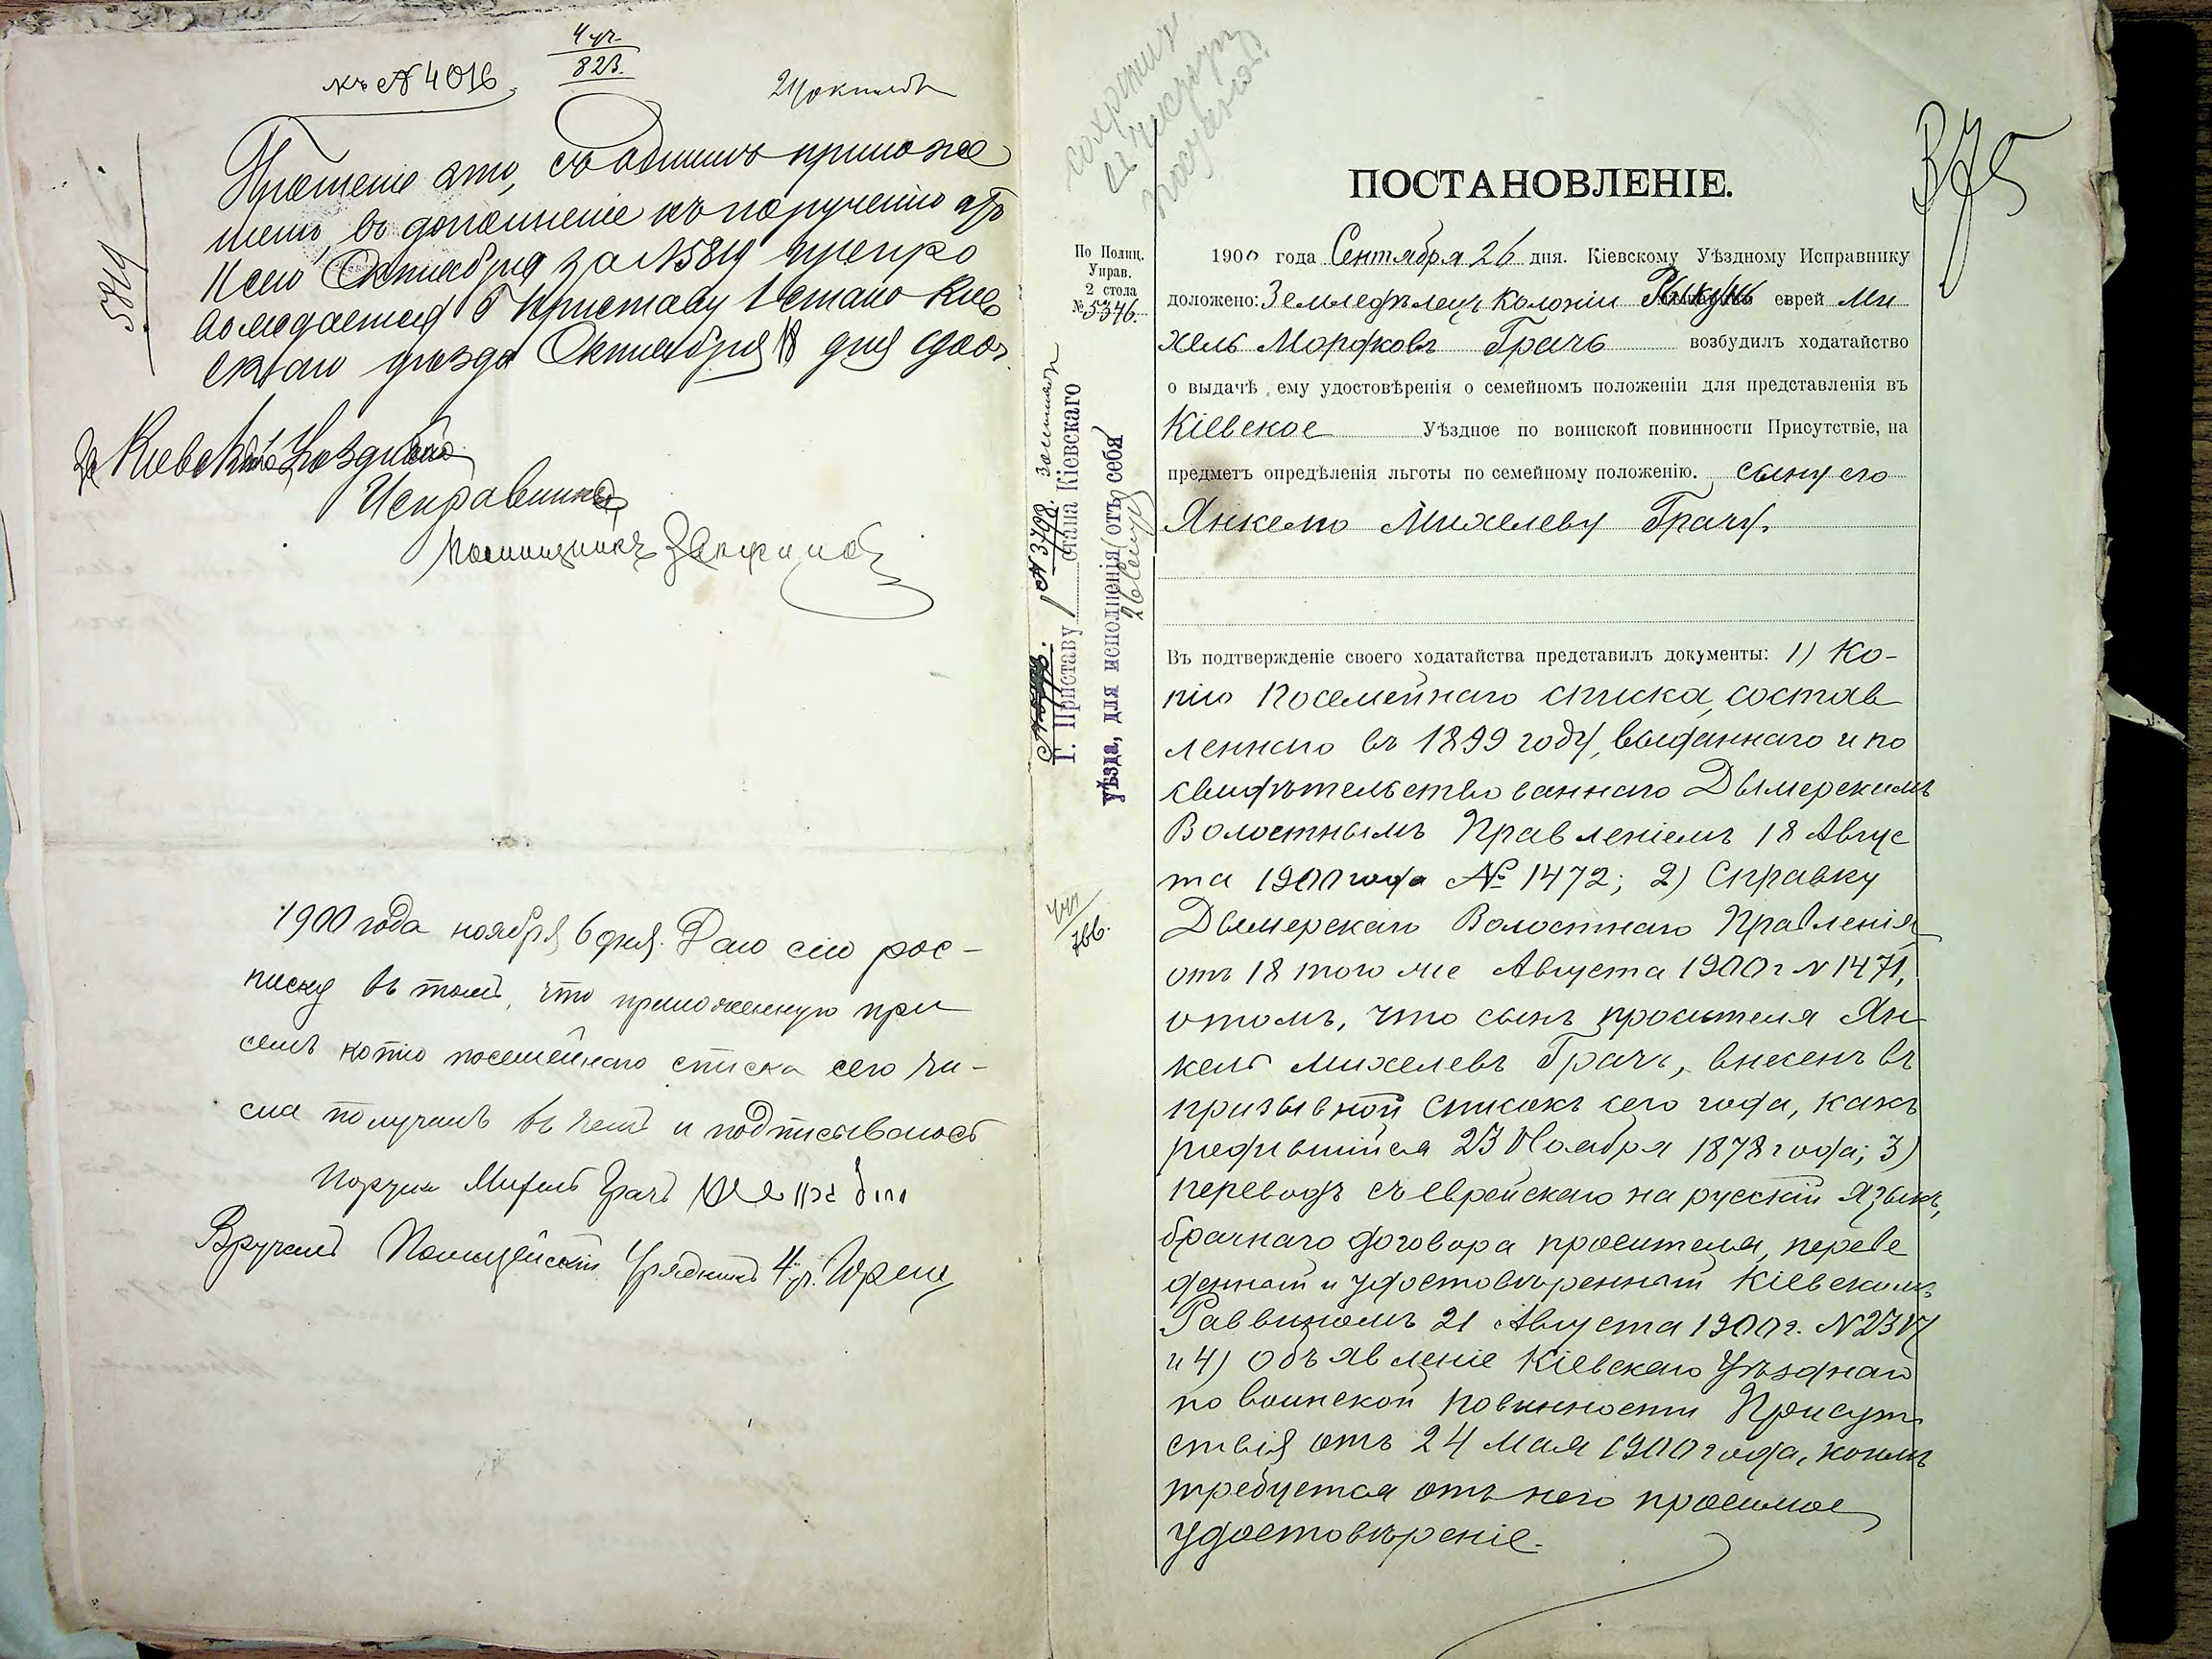 къ № 4016.
4 уч.
823.
5819
Прошеніе это, съ однимъ приложе
ніемъ, въ дополненіе къ порученію отъ
11 сего Октября за № 5819 препро
вождается Г Приставу 1 стана Кіев
скаго уѣзда Октября 18 дня 1900 г.
За Кіевскаго Уѣзднаго
Исправника
Помощникъ
1900 года ноября 6 дня. Даю сію рос-
писку въ томъ, что приложенную при
семъ копію посемейнаго списка сего чи-
сла получилъ въ чемъ и подписываюсь
Михель Грачъ
Вручилъ Полицейскій Урядникъ 4 уч.
ПОСТАНОВЛЕНІЕ.
По Полиц.
Управ.
2 стола
№ 5346.
№ 3798.
Г. Приставу 1 стана Кіевскаго
уѣзда, для исполненія отъ себя
26 Сент
766.
1900 года Сентября 26 дня. Кіевскому Уѣздному Исправнику
доложено: Земледѣлецъ колоніи еврей Ми
хель Мордковъ Грачъ возбудилъ ходатайство
о выдачѣ ему удостовѣренія о семейномъ положеніи для представленія въ
Кіевское Уѣздное по воинской повинности Присутствіе, на
предметъ опредѣленія льготы по семейному положенію. сыну его
Янкелю Михелеву Грачу.
Въ подтвержденіе своего ходатайства представилъ документы: 1) Ко-
пію посемейнаго списка, состав
леннаго въ 1899 году, выданнаго и по
свидѣтельствованнаго Дымерскимъ
Волостнымъ Правленіемъ 18 Авгус
та 1900 года № 1472; 2) Справку
Дымерскаго Волостнаго Правленія
отъ 18 того же Августа 1900 г № 1471,
о томъ, что сынъ просителя Ян
кель Михелевъ Грачъ, внесенъ въ
призывной списокъ сего года, какъ
родившійся 23 Ноября 1878 года; 3)
переводъ съ еврейскаго на русскій языкъ,
брачнаго договора просителя, переве
денный и удостовѣренный Кіевскимъ
Раввиномъ 21 Августа 1900 г.
и 4) Объявленіе Кіевскаго Уѣзднаго
по воинской повинности Присут
ствія отъ 24 Мая 1900 года, коимъ
требуется отъ него просимое
удостовѣреніе.